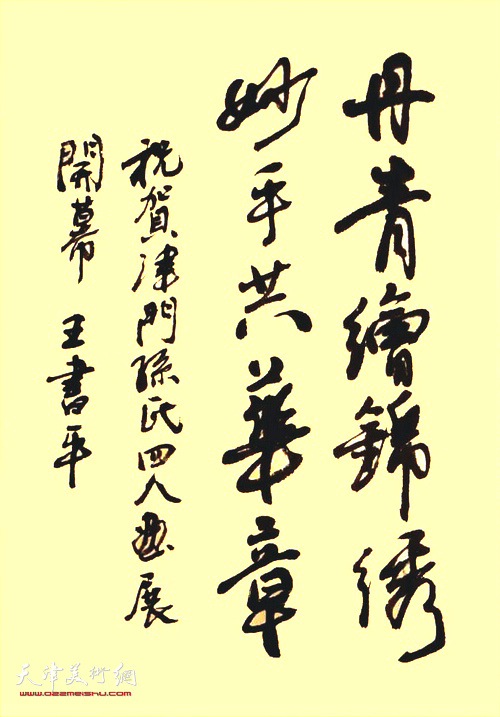 丹青繪錦绣
妙手共華章
祝賀津門孫氏四人画展
開幕 王書平
天津美術網
www.022meishu.com